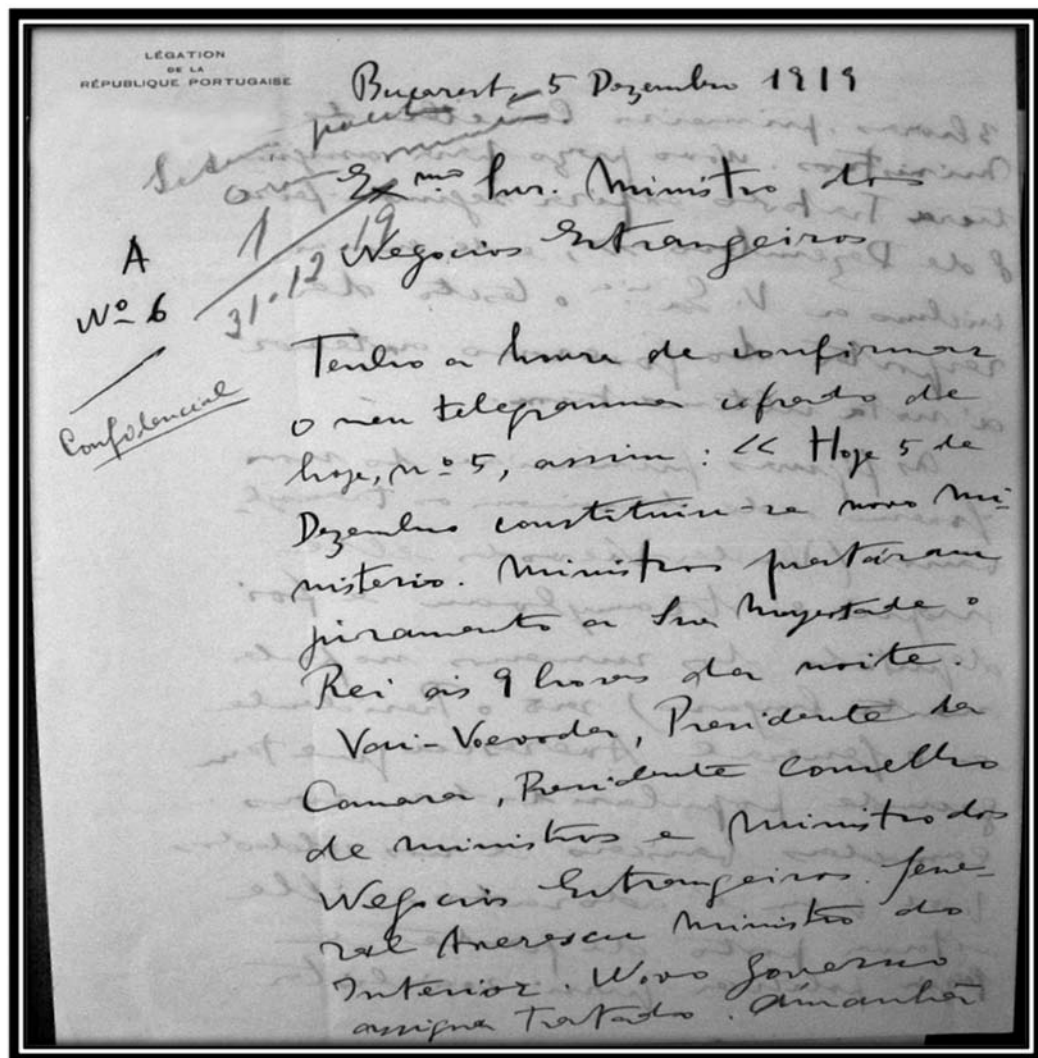 LÉGATION
DE LA
RÉPUBLIQUE PORTUGAISE
Bucarest, 5 Dezembro 1919
Exmo Snr. Ministro dos
Negocios Estrangeiros
A
Nº 6
1
31-12 19
Confidencial
Tenho a honra de confirmar
o meu telegramma cifrado de
hoje, nº 5, assim: << Hoje 5 de
Dezembro constituiu-se novo mi-
nisterio. Ministros prestáram
juramento a Sua Magestade o
Rei ás 9 horas da noite.
Vaii-Voevoda, Presidente da
Camara, Presidente Conselho
de ministros e Ministro dos
Negocios Estrangeiros. Gene-
ral Averescu Ministro do
Interior. Novo Governo
assigna Tratado. Amanhã